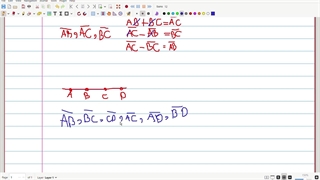 A̅B̅ + B̅C̅ = A̅C̅
A̅B̅, A̅C̅, B̅C̅ A̅C̅ - A̅B̅ = B̅C̅
A̅C̅ - B̅C̅ = A̅B̅
A B C D
A̅B̅, B̅C̅, C̅D̅, A̅C̅, A̅D̅, B̅D̅